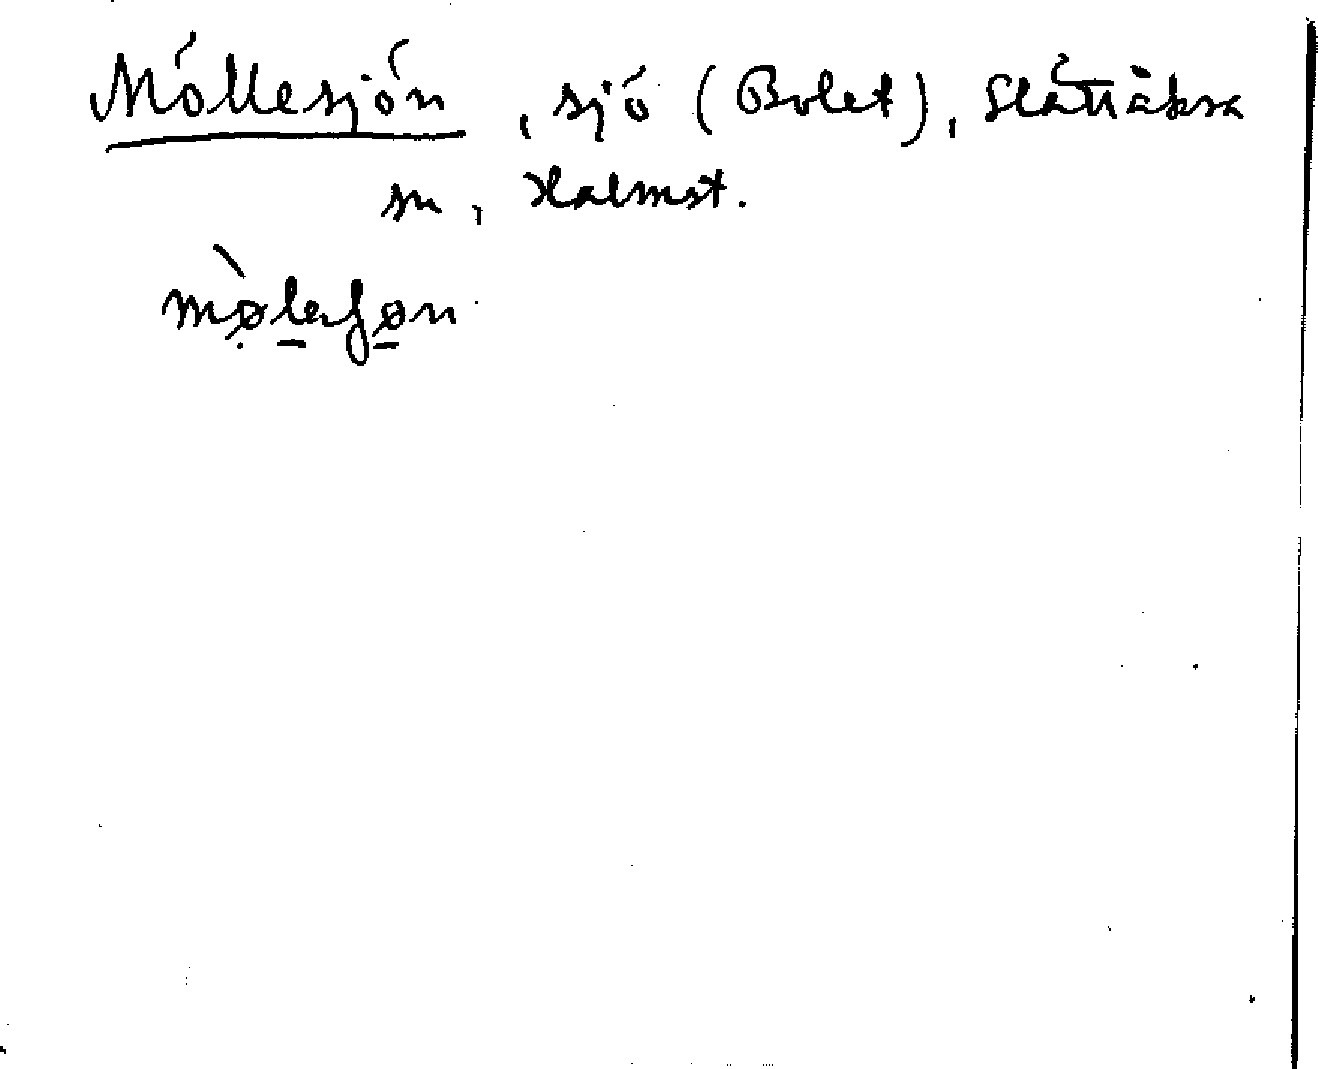 Möllesjön, sjö (Bolet), Slättåkra
sn, Halmst.
mø̀laʃøn